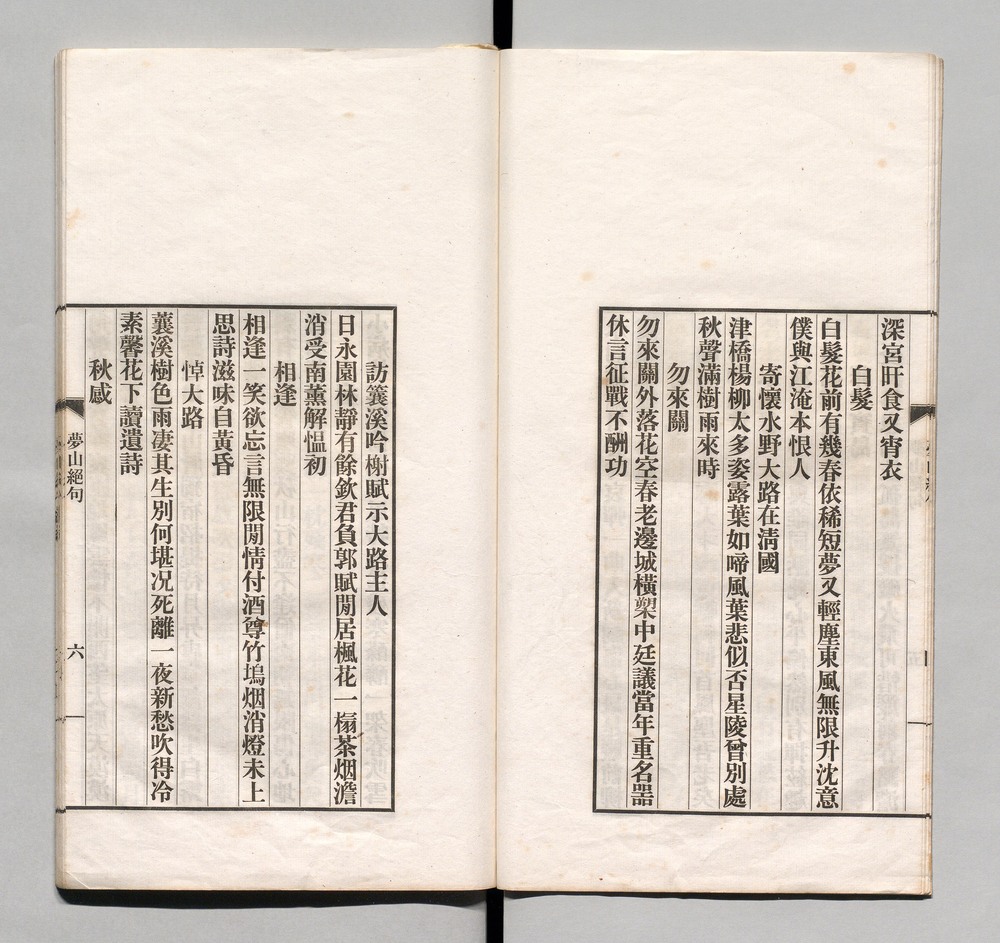 深宮旰食又宵衣
白髮
白髮花前有幾春依稀短夢又輕塵東風無限升沈意
僕與江淹本恨人
寄懷水野大路在淸國
津橋楊柳太多姿露葉如啼風葉悲似否星陵曾別處
秋聲滿樹雨來時
勿來關
勿來關外落花空春老邊城橫槊中廷議當年重名器
休言征戰不酬功
訪蓑溪吟榭賦示大路主人
日永園林靜有餘欽君負郭賦閒居楓花一榻茶烟澹
消受南薰解慍初
相逢
相逢一笑欲忘言無限閒情付酒尊竹塢烟消燈未上
思詩滋味自黃昏
悼大路
蓑溪樹色雨淒其生別何堪况死離一夜新愁吹得冷
素馨花下讀遺詩
秋感
夢山絕句
六